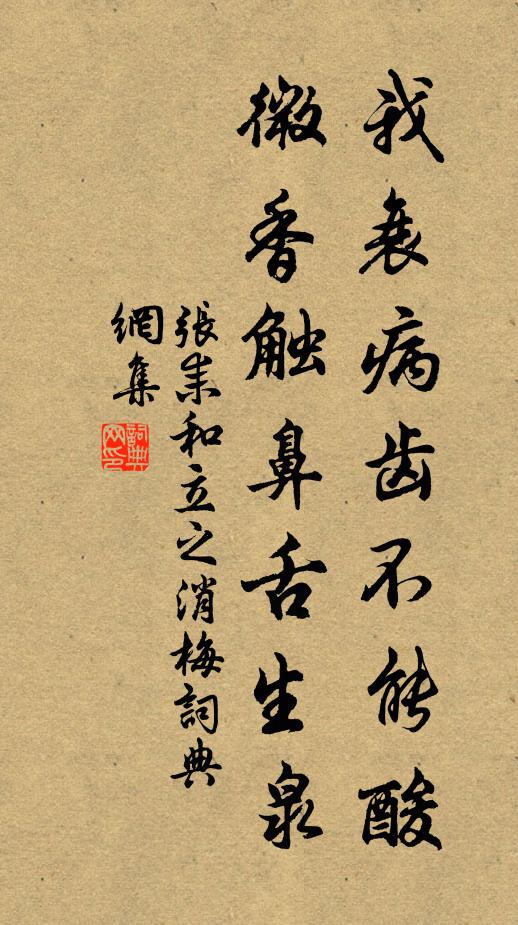 我衰病齿不能酸
微香触鼻舌生泉
張耒和立之消梅詞典
網集
詞典网印